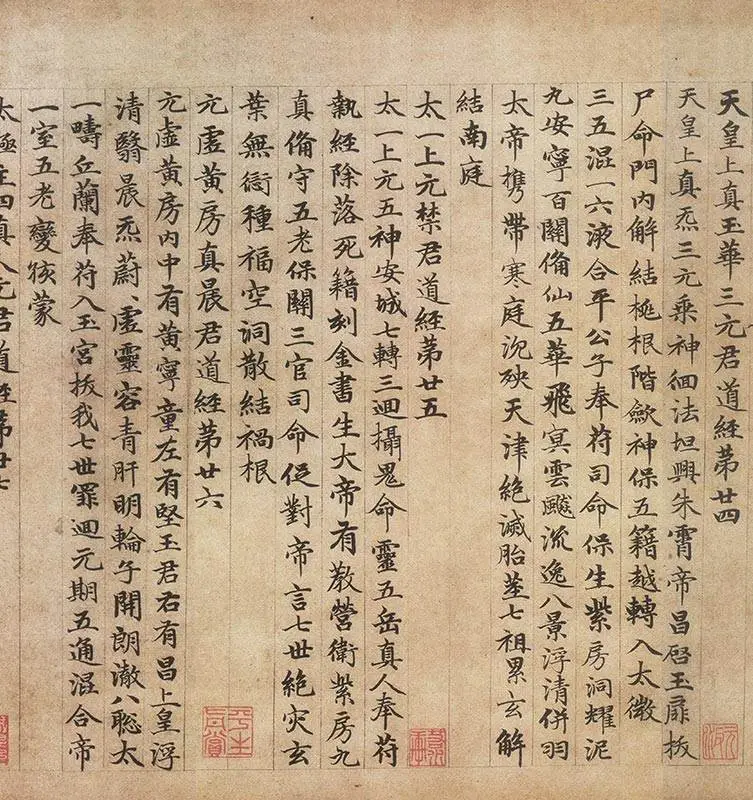 天皇上真玉華三元君道經第廿四
天皇上真炁三元乘神徊法坦興朱霄帝昌啓玉扉披
尸命門内解結㮈根階歛神保五籍越轉入太微
三五混一六液合平公子奉符司命保生紫房洞耀泥
九安寧百關俻仙五華飛冥雲飈流逸八景浮清併羽
太帝携帶寒庭沉殃天津絶滅胎莖七祖累玄解
結南庭
太一上元禁君道經第廿五
太一上元五神安城七轉三迴攝鬼命靈五岳真人奉苻
執經除落死籍刻金書生大帝有教營衛紫房九
真俻守五老保關三官司命促對帝言七世絶灾玄
葉無愆種福空洞散結禍根
元虚黄房真晨君道經第廿六
元虚黄房内中有黄寧童左有堅玉君右有昌上皇浮
清翳晨炁蔚、虚靈容青肝明輪午開朗澈八聡太
一疇丘蘭奉苻入玉宮拔我七世罪迴元期五通混合帝
一室五老變孩蒙
太極主四真人元君道經第廿七